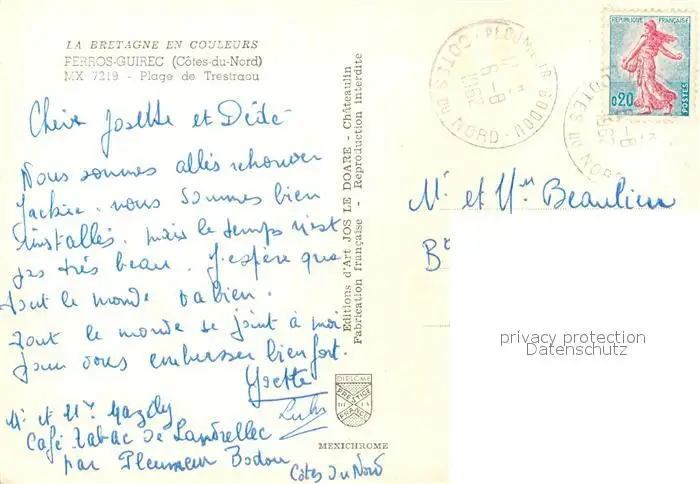 LA BRETAGNE EN COULEURS
PERROS-GUIREC (Côtes-du-Nord)
MX 7219 - Plage de Trestraou
Chers Josette et Dédé
Nous sommes allés retrouver
nous sommes bien
installés. mais le temps n'est
pas très beau. J'espère que
tout le monde va bien.
Tout le monde se joint à moi
pour vous embrasser bien fort.
Yvette
Mr et Mme
Café Tabac de Landrellec
par Pleumeur Bodou
Côtes du Nord
Editions d'Art JOS LE DOARE - Châteaulin
Fabrication française - Reproduction interdite
DIPLOME
PRESTIGE
FRANCE
MEXICHROME
PLEUMEUR BODOU
6-8
1962
COTES DU NORD
REPUBLIQUE FRANÇAISE
0,20
POSTES
COTES DU NORD
6-8
1962
Mr et Mme Beaulieu
privacy protection
Datenschutz